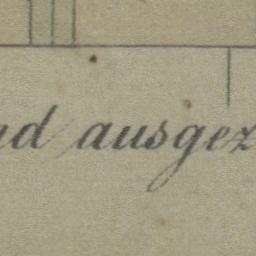 nd ausgez